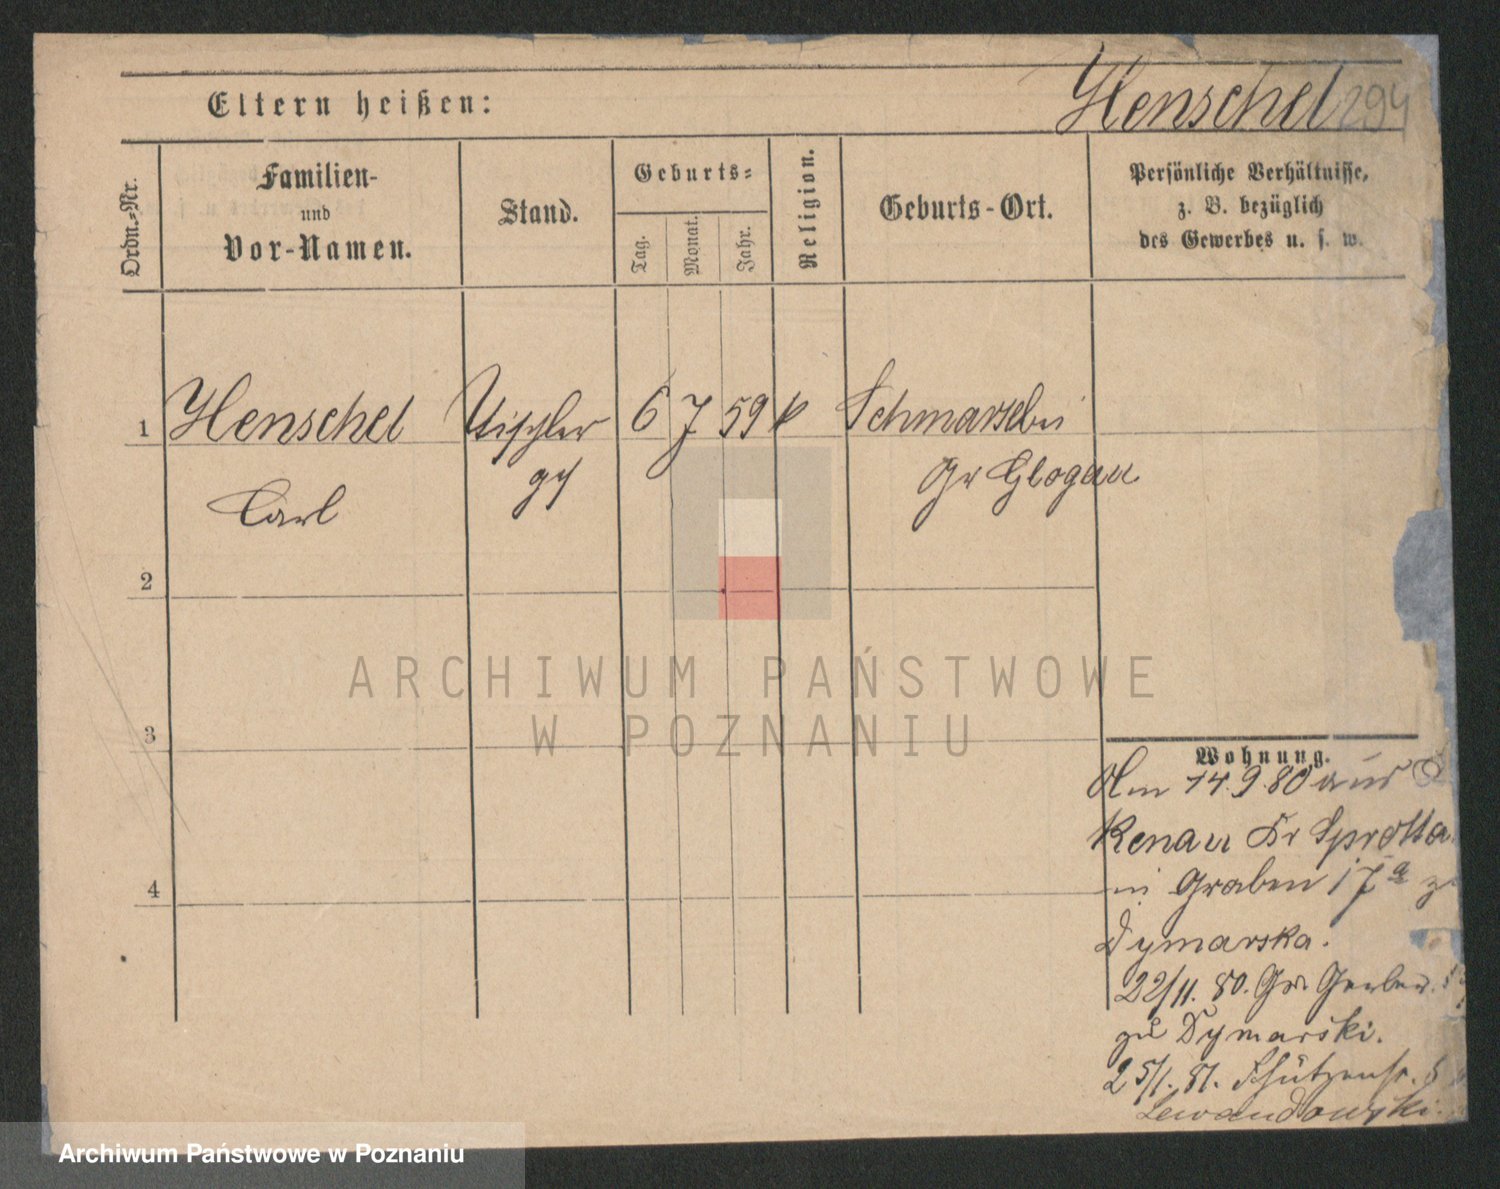 Eltern heißen:
Henschel 294
Ordn.-Nr.
Familien-
und
Vor-Namen.
Stand.
Geburts-
Tag.
Monat.
Jahr.
Religion.
Geburts-Ort.
Persönliche Verhältnisse,
z. B. bezüglich
des Gewerbes u. s. w.
1 Henschel Tischler 6 7 59 k Schmarselni
Carl gs Gr Glogau
2
3
4
Wohnung.
Am 14.9.80 aus
Renau Kr Sprotta
in Graben 17a
Dymarska.
22/11. 80. Gr. Gerber.
zu Dymarski.
25/1. 81. Schützenstr.
Lewandowski.
ARCHIWUM PAŃSTWOWE
W POZNANIU
Archiwum Państwowe w Poznaniu